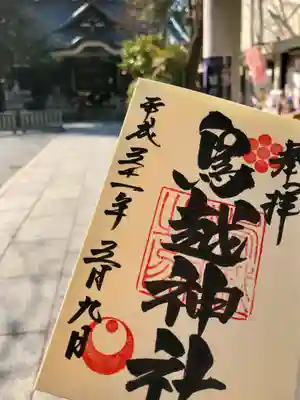 奉拝
鳥越神社
平成三十一年三月九日